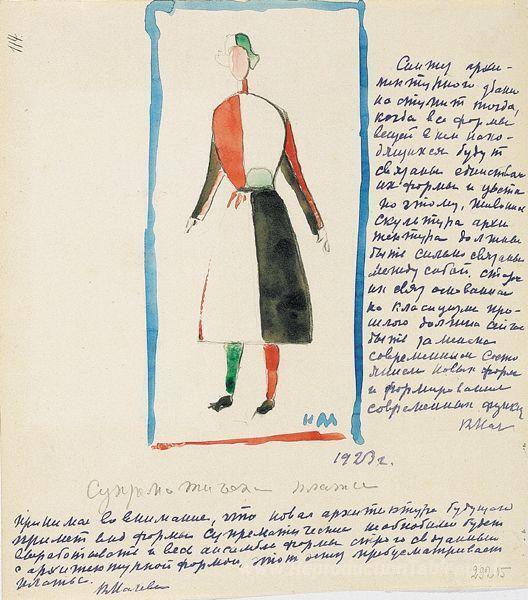 114.
Синтез архи-
тектурного здания
наступит тогда,
когда все формы
вещей в нем нахо-
дящихся будут
связаны единством
их формы и цвета
поэтому, живопись
скульптура архи
тектура должны
быть сильно связаны
между собой.
связ основанная
на класицизме про-
шлого должна
быть заменена
современным состо
янием новых форм
и формирования
современных
КМал
КМ
1923 г.
Супрематическ платье
Принимая во внимание, что новая архитектура будущего
примет вид формы Супрематическ необходимо будет
выработать и весь ансамбль формы строго связанный
с архитектурной формою, этот эскиз предусматривает
платье. КМалеви